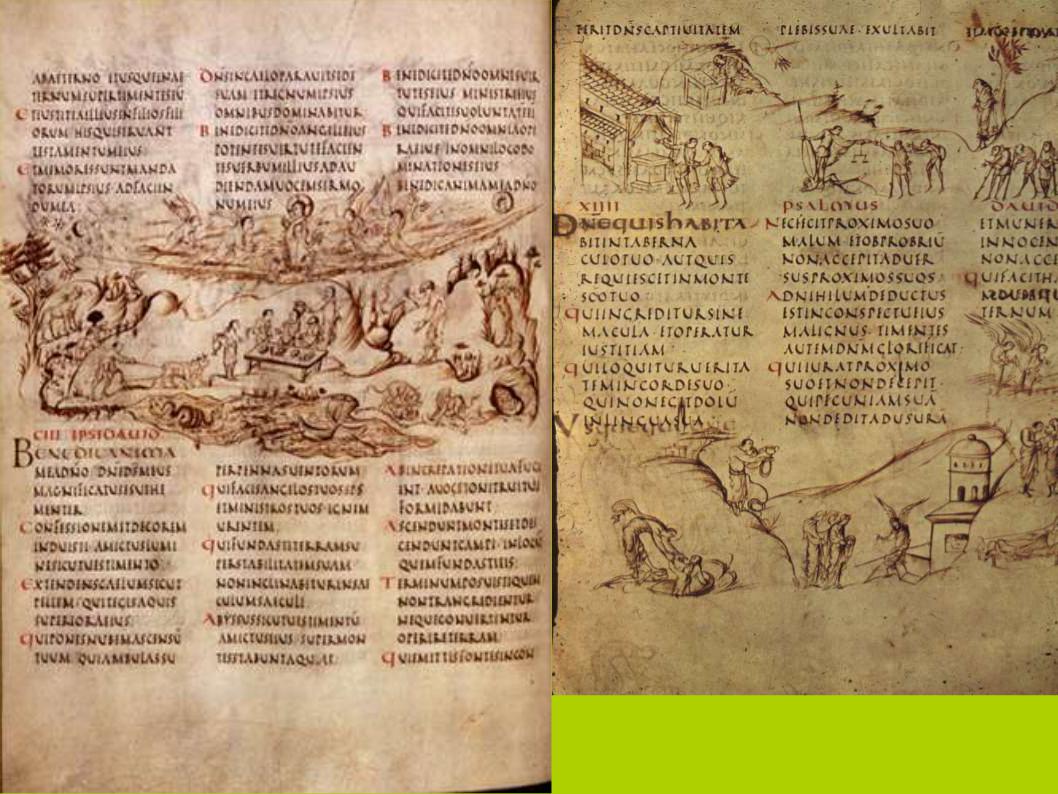 ABAETERNO ETUSQUEINAE
TERNUMSUPERTIMENTESEŪ
ETIUSTITIAILLIUSINFILIOSFILI
ORUM HISQUISERUANT
TESTAMENTUMEIUS
ETMEMORESSUNTMANDA
TORUMIPSIUS ADFACIEN
DUMEA
DNSINCAELOPARAUITSEDE
SUAM ETREGNUMIPSIUS
OMNIBUSDOMINABITUR
BENEDICITEDNOANGELIEIUS
POTENTESUIRTUTEFACIEN
TESUERBUMILLIUSADAU
DIENDAMUOCEMSERMO
NUMEIUS
BENEDICITEDNOOMNESUIR
TUTESEIUS MINISTRIEIUS
QUIFACITISUOLUNTATEEI
BENEDICITEDNOOMNIAOPE
RAEIUS INOMNILOCODO
MINATIONESEIUS
BENEDICANIMAMEADNO
CIII IPSIDAUID
BENEDICANIMA
MEADNO DNEDSMEUS
MAGNIFICATUSESUEHE
MENTER
CONFESSIONEMETDECOREM
INDUISTI AMICTUSLUMI
NESICUTUESTIMENTO
EXTENDENSCAELUMSICUT
PELLEM QUITEGISAQUIS
SUPERIORAEIUS
QUIPONISNUBEMASCENSŪ
TUUM QUIAMBULASSU
PERPENNASUENTORUM
QUIFACISANGELOSTUOSSPS
ETMINISTROSTUOS IGNEM
URENTEM
QUIFUNDASTITERRAMSU
PERSTABILITATEMSUAM
NONINCLINABITURINSAE
CULUMSAECULI
ABYSSUSSICUTUESTIMENTŪ
AMICTUSEIUS SUPERMON
TESSTABUNTAQUAE
ABINCREPATIONETUAFUGI
ENT AUOCETONITRUITUI
FORMIDABUNT
ASCENDUNTMONTESETDES
CENDUNTCAMPI INLOCŪ
QUEMFUNDASTIEIS
TERMINUMPOSUISTIQUEM
NONTRANGREDIENTUR
NEQUECONUERTENTUR
OPERIRETERRAM
QUIEMITTISFONTESINCON
TERITDNSCAPTIUITATEM
PLEBISSUAE EXULTABIT
XIIII PSALMUS DAUID
DNEQUISHABITA
BITINTABERNA
CULOTUO AUTQUIS
REQUIESCETINMONTE
SCOTUO
QUIINGREDITURSINE
MACULA ETOPERATUR
IUSTITIAM
QUILOQUITURUERITA
TEMINCORDESUO
QUINONEGITDOLŪ
INLINGUASUA
NECFECITPROXIMOSUO
MALUM ETOBPROBRIŪ
NONACCEPITADUER
SUSPROXIMOSSUOS
ADNIHILUMDEDUCTUS
ESTINCONSPECTUEIUS
MALIGNUS TIMENTES
AUTEMDNMGLORIFICAT
QUIIURATPROXIMO
SUOETNONDECEPIT
QUIPECUNIAMSUĀ
NONDEDITADUSURĀ
ETMUNER
INNOCEN
NONACCE
QUIFACITH
TERNUM